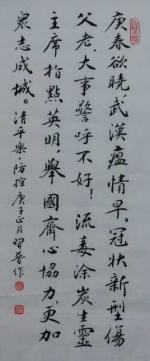 庚春欲曉，武漢瘟情早。冠狀新型傷
父老，大事警呼不好！流毒涂炭生靈
主席指點英明，舉國齊心協力，更加
眾志成城。清平樂·防控庚子正月習晉作